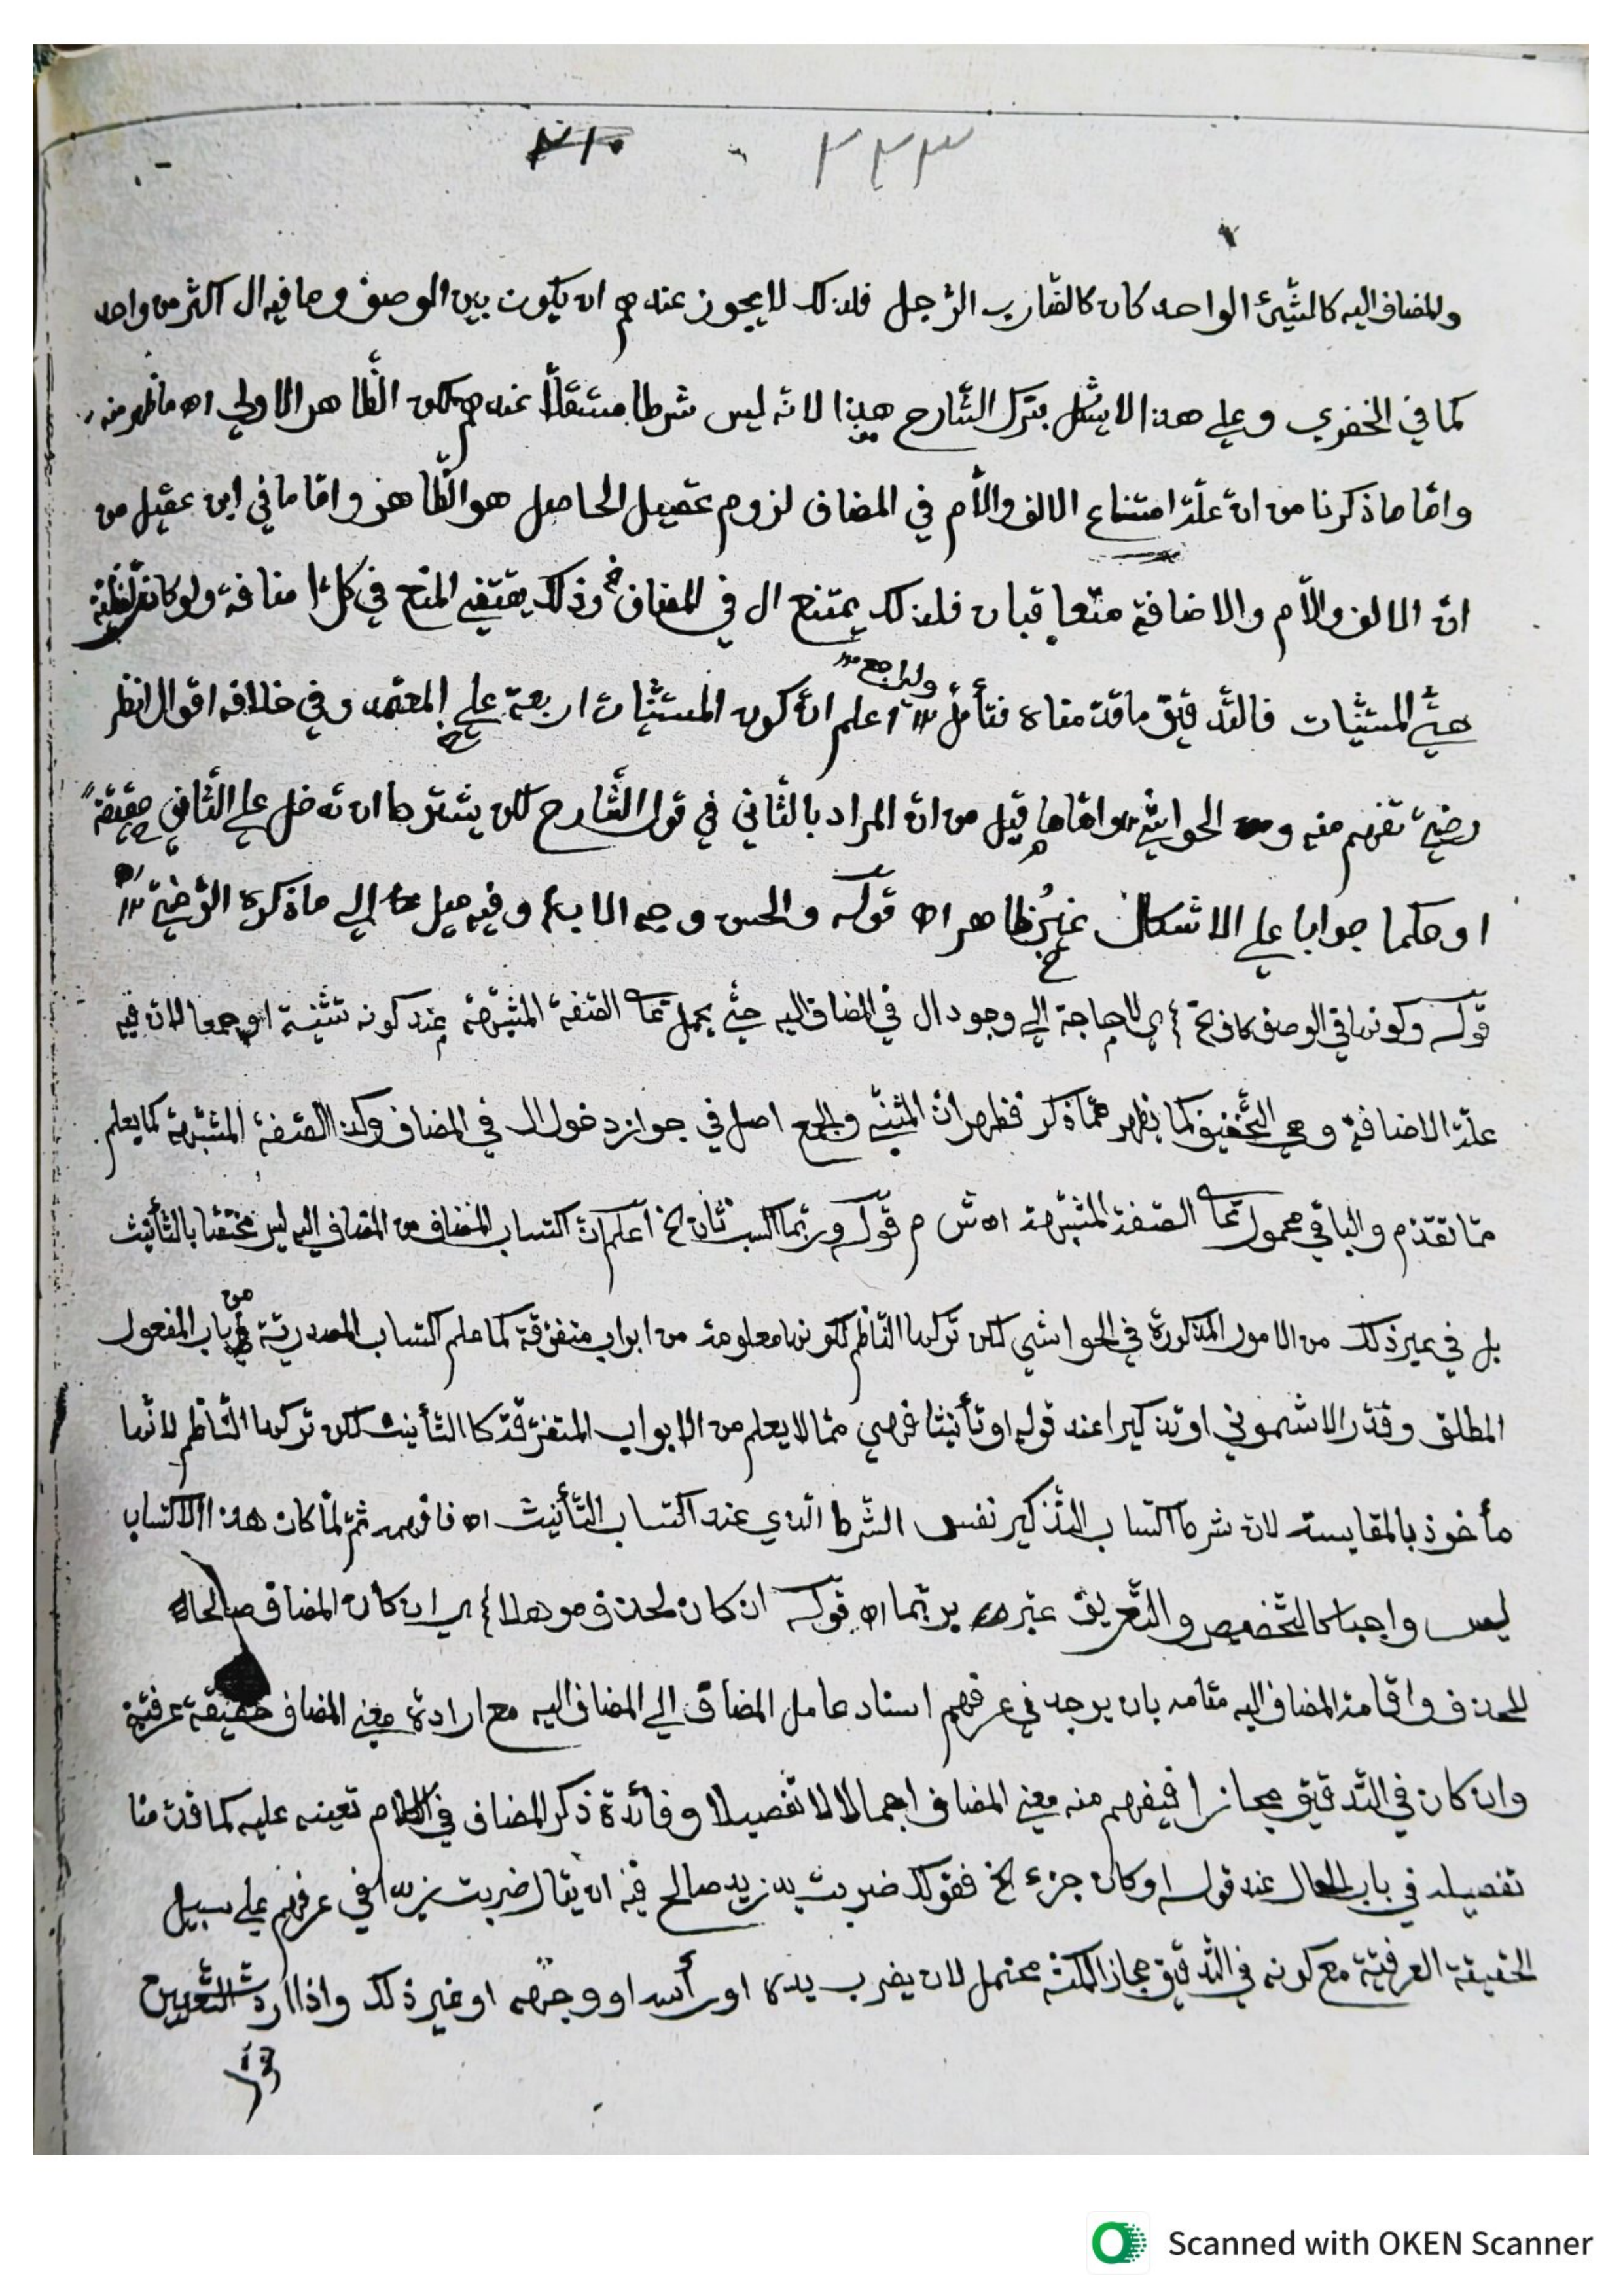 ٢١٠ ٢٢٣
والمضاف اليه كالشيئ الواحد كان كالضارب الرجل فلذلك لا يجوز عندهم ان يكون بين الوصف وما فيه ال اكثر من واحد
كما في الخضري وعلى هذا لا يشكل بترك الشارح هذا لانه ليس شرطا مستقلا عندهم لكن الظاهر الاولى اه ما ظهر منه
واما ما ذكرنا من ان علة امتناع الالف واللام في المضاف لزوم تحصيل الحاصل هو الظاهر واما ما في ابن عقيل من
ان الالف واللام والاضافة متعاقبان فلذلك يمتنع ال في المضاف وذلك يقتضي المنع في كل اضافة ولو كانت لفظية
حتى المستثنيات فالتدقيق ما قدمناه فتأمل وليراجع اعلم ان كون المستثنيات اربعة على المعتمد وفي خلافه اقوال انظر
رضي تفهم منه ومن الحواشي واما ما قيل من ان المراد بالثاني في قول الشارح لكن يشترط ان تدخل على الثاني حقيقة
او حكما جوابا على الاشكال غير ظاهر اه قوله والحسن وجه الاب وفيه ميل الى ما ذكره الرضي اه
قوله وكونها في الوصف كاف الخ اي لا حاجة الى وجود ال في المضاف اليه حتى يحمل على الصفة المشبهة عند كونه تثنية او جمعا لان فيه
علة الاضافة وهي التخفيف كما يظهر مما ذكر فظهر ان المثنى والجمع اصل في جواز دخول ال في المضاف وكذا الصفة المشبهة كما يعلم
مما تقدم والباقي محمول على الصفة المشبهة اه ش م قوله وربما اكسب ثان الخ اعلم ان اكتساب المضاف من المضاف اليه ليس مختصا بالتأنيث
بل في غير ذلك من الامور المذكورة في الحواشي لكن تركها الناظم لكونها معلومة من ابواب متفرقة كما علم اكتساب المصدرية من باب المفعول
المطلق وقدر الاشموني او تذكيرا عند قوله او تأنيثا فهي مما لا يعلم من الابواب المتفرقة كالتأنيث لكن تركها الناظم لانها
مأخوذ بالمقايسة لان شرط اكتساب التذكير نفس الشرط الذي عند اكتساب التأنيث اه فافهمه ثم لما كان هذا الاكتساب
ليس واجبا كالتخصيص والتعريف عبر بربما اه قوله ان كان لحذف موهلا اي ان كان المضاف صالحا
للحذف واقامة المضاف اليه مقامه بان يوجد في عرفهم اسناد عامل المضاف الى المضاف اليه مع ارادة معنى المضاف حقيقة عرفية
وان كان في التدقيق مجازا فيفهم منه معنى المضاف اجمالا لا تفصيلا وفائدة ذكر المضاف في الكلام تعينه عليه كما قدمنا
تفصيله في باب الحال عند قوله او كان جزء الخ فقولك ضربت يد زيد صالح فيه ان يقال ضربت زيدا في عرفهم على سبيل
الحقيقة العرفية مع كونه في التدقيق مجازا لكنه محتمل لان يضرب يده او رأسه او وجهه او غير ذلك واذا اردت التعيين
Scanned with OKEN Scanner